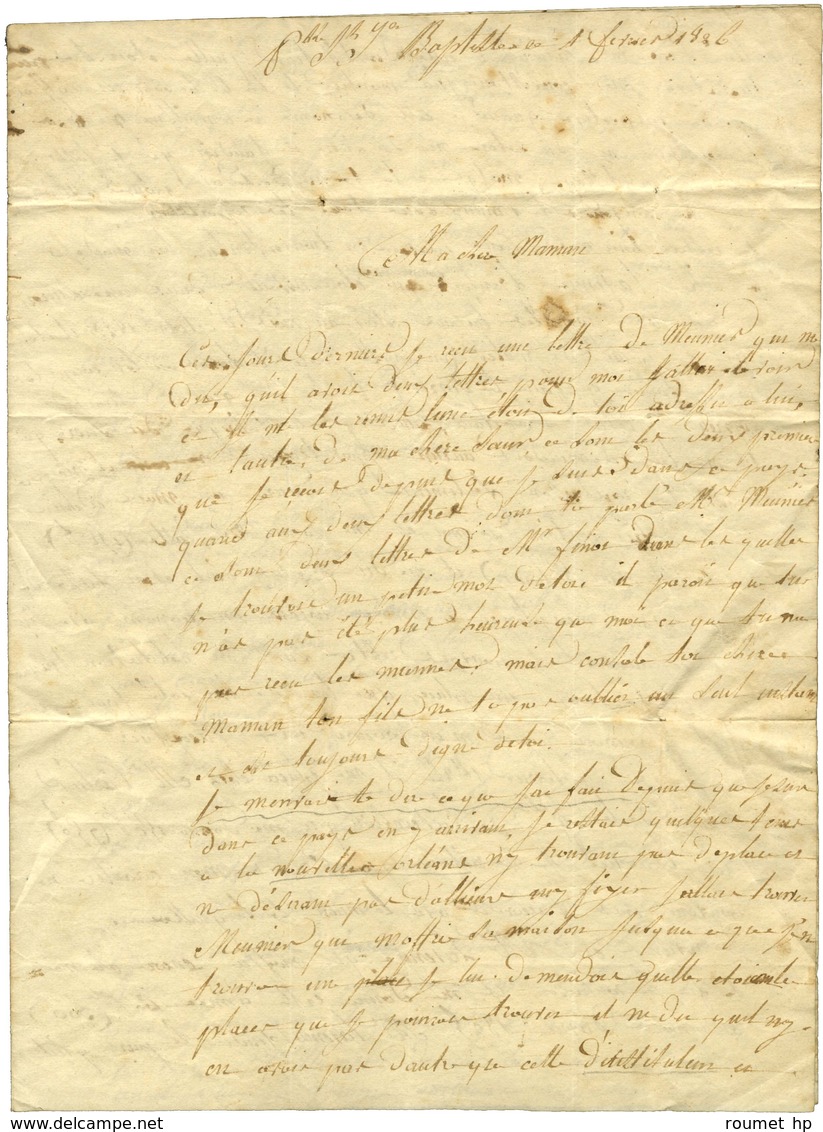 St Jn Baptiste ce 1 fevrier 1826
Ma chere Maman
Ces jours derniers je reçu une lettre de Meunier qui me
dit qu'il avoit deux lettres pour moi j'allai le voir
et il me les remis l'une étoit de toi adressée a lui,
et l'autre de ma chere Sœur ce sont les deux premieres
que je reçois depuis que je suis dans ce pays.
quand aux deux lettres dont te parle Mr Meunier
ce sont deux lettres de Mr finot dans les quelles
je trouvois un petit mot de toi il paroit que tu
n'as pas été plus heureuse que moi ce que tu na
pas reçu les miennes. mais console toi chere
Maman ton fils ne t'a pas oublié un seul instant
et est toujours digne de toi.
Je m'envais te dire ce que jai fait depuis que je suis
dans ce pays en y arrivant. Je restais quelques tems
a la nouvelle orléans n'y trouvant pas de place et
ne désirant pas d'ailleurs my fixer jallois trouver
Meunier qui moffrit sa maison jusqua ce que j'en
trouve une place je lui demandois quelle étoient les
places que je pourrois trouver il me dit quil ny
en avoit pas dautre que celle d'institituteur et
roumet hp